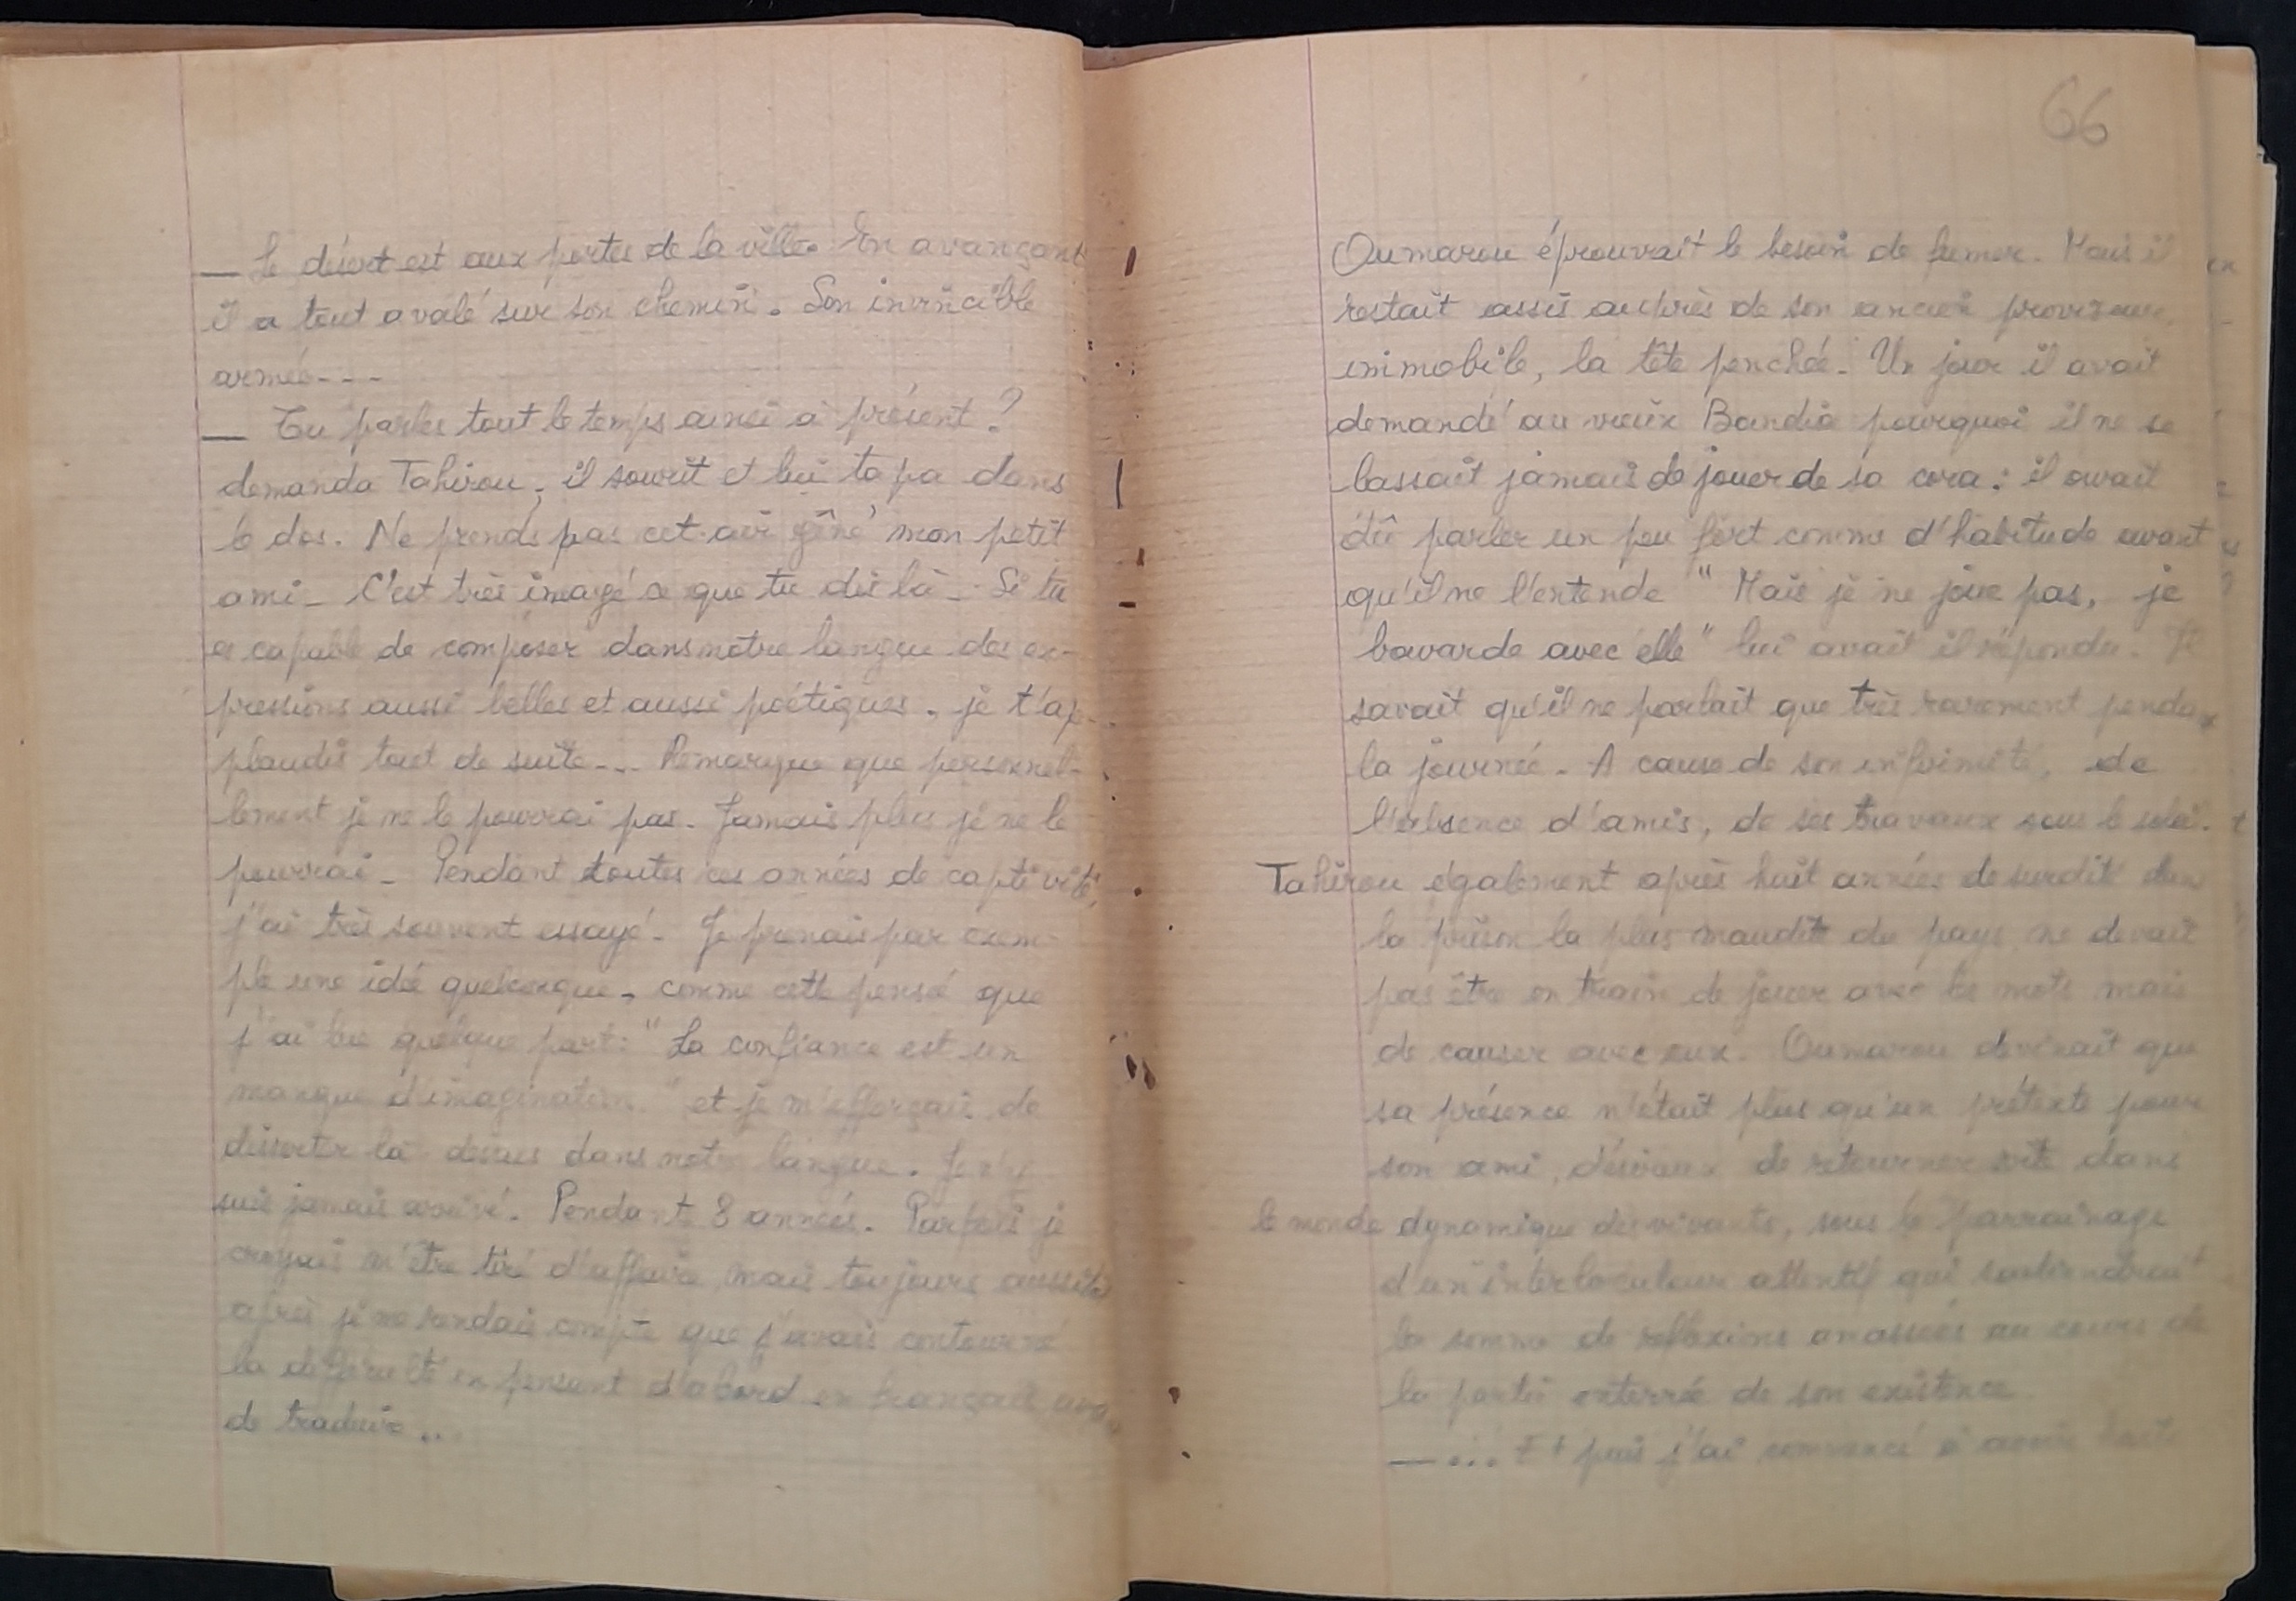 — Le désert est aux portes de la ville. En avançant
il a tout avalé sur son chemin. Son invincible
armée---
— Tu parles tout le temps ainsi à présent?
demanda Tahirou, il sourit et lui tapa dans
le dos. Ne prends pas cet air gêné mon petit
ami - C'est très imagé ce que tu dis là - Si tu
es capable de composer dans notre langue des ex-
pressions aussi belles et aussi poétiques, je t'ap-
plaudis tout de suite--- Remarque que personnel-
lement je ne le pourrai pas. Jamais plus je ne le
pourrai - Pendant toutes ces années de captivité,
j'ai très souvent essayé - Je prenais par exem-
ple une idée quelconque, comme cette pensée que
j'ai lue quelque part: "La confiance est un
manque d'imagination" et je m'efforçais de
disserter là-dessus dans notre langue. Je n'y
suis jamais arrivé. Pendant 8 années. Parfois je
croyais m'être tiré d'affaire mais toujours aussitôt
après je me rendais compte que j'avais contourné
la difficulté en pensant d'abord en français
de traduire...
66
Oumarou éprouvait le besoin de fumer. Mais il
restait assis auprès de son ancien proviseur
immobile, la tête penchée. Un jour il avait
demandé au vieux Bandia pourquoi il ne se
lassait jamais de jouer de sa cora: il avait
dû parler un peu fort comme d'habitude avant
qu'il ne l'entende "Mais je ne joue pas, je
bavarde avec elle" lui avait il répondu. Il
savait qu'il ne parlait que très rarement pendant
la journée - A cause de son infirmité, de
l'absence d'amis, de ses travaux sous le soleil.
Tahirou également après huit années de surdité dans
la prison la plus maudite du pays ne devait
pas être en train de jouer avec les mots mais
de causer avec eux. Oumarou devinait que
sa présence n'était plus qu'un prétexte pour
son ami, désireux de retourner vite dans
le monde dynamique des vivants, sous le parrainage
d'un interlocuteur attentif qui soutiendrait
la somme de réflexions amassées au cours de
la partie enterrée de son existence
— ... Et puis j'ai commencé à avoir